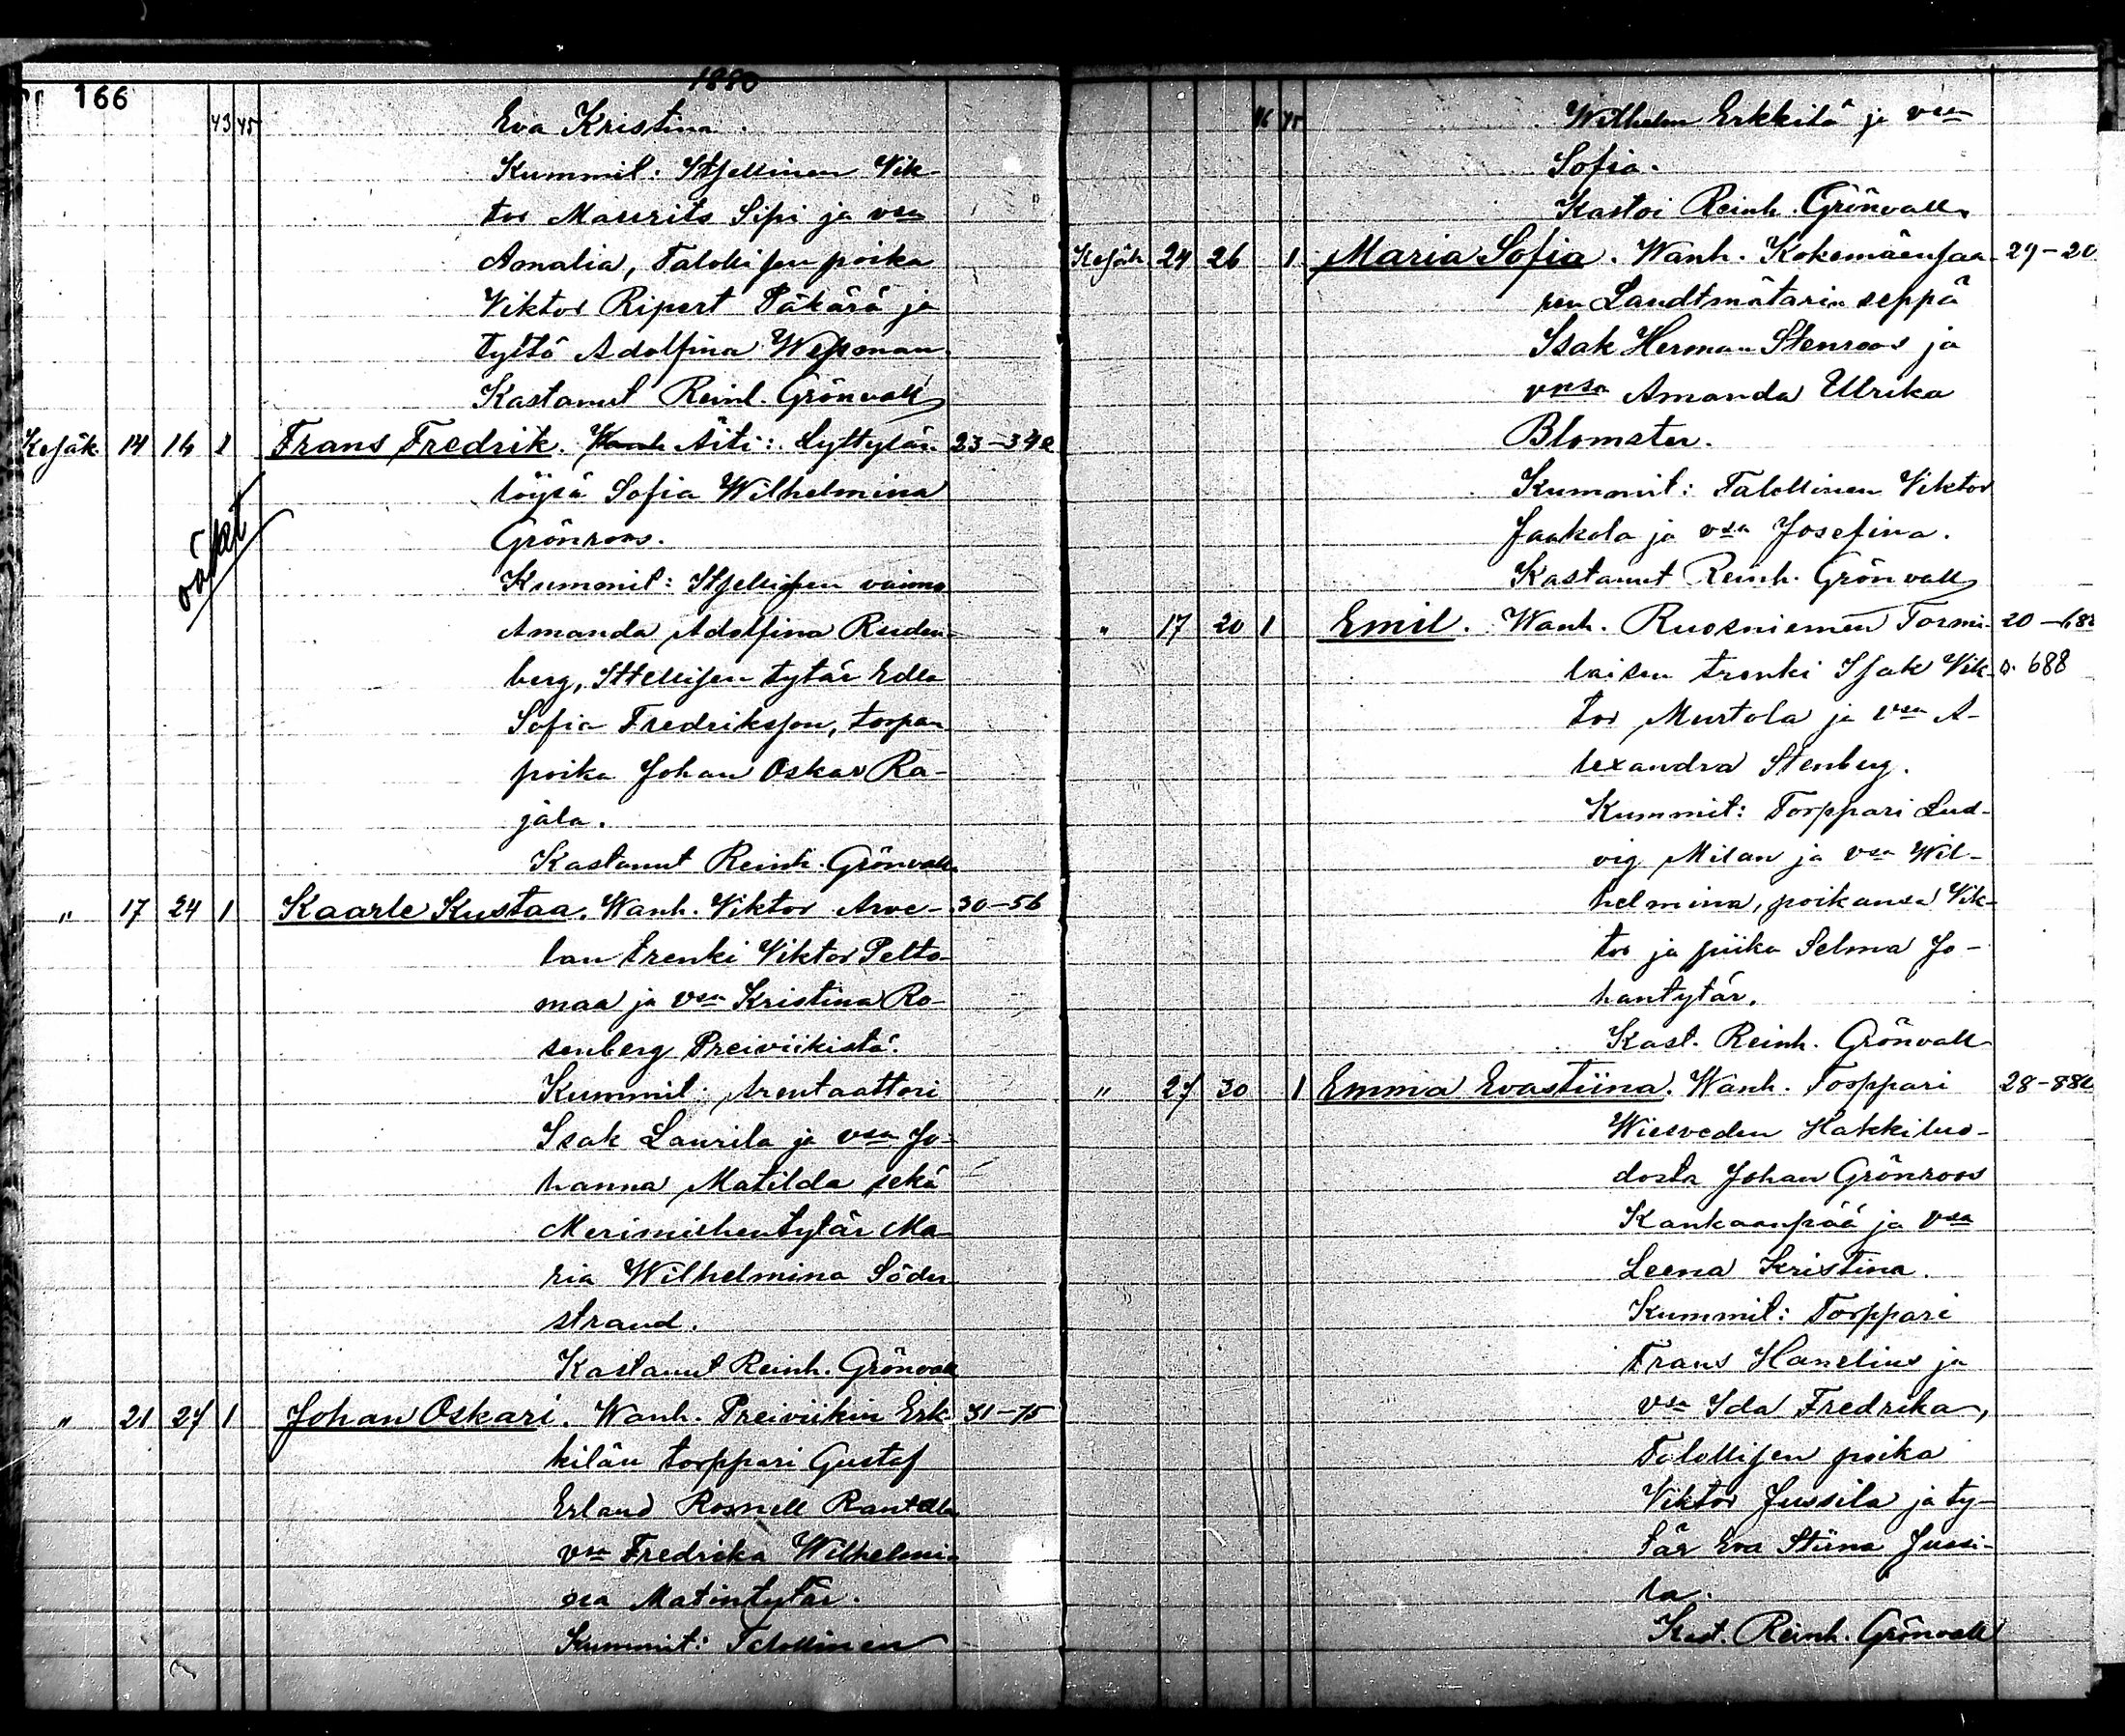 166
1880
43 45
Eva Kristina.
Kummit: Itsellinen Vik-
tor Maurits Sipi ja vsa
Amalia, Talollisen poika
Viktor Ripert Päkärä ja
tyttö Adolfina Wessman
Kastanut Reinh. Grönvall
Kesäk. 14 16 1 Frans Fredrik. Äiti: Lyttylän 23-342
löysä Sofia Wilhelmina
Grönroos.
Kummit: Itsellisen vaimo
Amanda Adolfina Ruden-
berg, Itsellisen tytär Edla
Sofia Fredriksson, torpan
poika Johan Oskar Ra-
jala.
Kastanut Reinh. Grönvall
" 17 24 1 Kaarle Kustaa. Wanh. Viktor Arve- 30-56
lan trenki Viktor Pelto-
maa ja vsa Kristina Ro-
senberg Preiviikistä.
Kummit: Arentaattori
Isak Laurila ja vsa Jo-
hanna Matilda sekä
Merimiehentytär Ma-
ria Wilhelmina Söder-
strand.
Kastanut Reinh. Grönvall
" 21 27 1 Johan Oskari. Wanh. Preiviikin Erk- 31-75
kilän torppari Gustaf
Erland Rosnell Rantala
vsa Fredrika Wilhelmi-
na Matintytär.
Kummit: Talollinen
46 45
Wilhelm Erkkilä ja vsa
Sofia.
Kastoi Reinh. Grönvall.
Kesäk 24 26 1 Maria Sofia. Wanh. Kokemäensaa- 29-20
ren Landtmätarin seppä
Isak Herman Stenroos ja
vmsa Amanda Ulrika
Blomster.
Kummit: Talollinen Viktor
Jaakola ja vsa Josefina.
Kastanut Reinh. Grönvall
" 17 20 1 Emil. Wanh. Ruosniemen Tormi- 20-682
laisen trenki Isak Vik- 688
tor Murtola ja vsa A-
lexandra Stenberg.
Kummit: Torppari Lud-
vig Milan ja vsa Wil-
helmina, poikansa Vik-
tor ja piika Selma Jo-
hantytär.
Kast. Reinh. Grönvall
" 27 30 1 Emma Evastiina. Wanh. Torppari 28-882
Wiisveden Hakkiluo-
dosta Johan Grönroos
Kankaanpää ja vsa
Leena Kristina.
Kummit: Torppari
Frans Hanelius ja
vsa Ida Fredrika,
Talollisen poika
Viktor Jussila ja ty-
tär Eva Stiina Jussi-
la.
Kast. Reinh. Grönvall